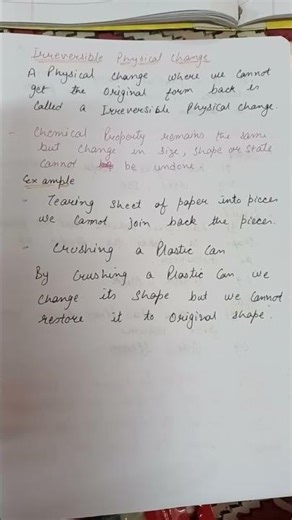 Irreversible Physical Change
A Physical change where we cannot
get the Original form back is
called a Irreversible Physical change.
- Chemical Property remains the same
but change in size, shape or state
cannot be undone.
Example
- Tearing sheet of paper into pieces
we cannot join back the pieces.
- Crushing a Plastic Can
By Crushing a Plastic Can we
change its shape but we cannot
restore it to original shape.